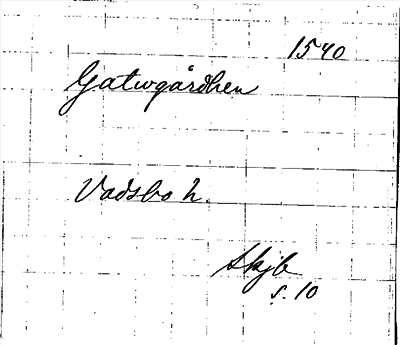 1540
Gatwgårdhen
Vadsbo h.
Skjb
s. 10